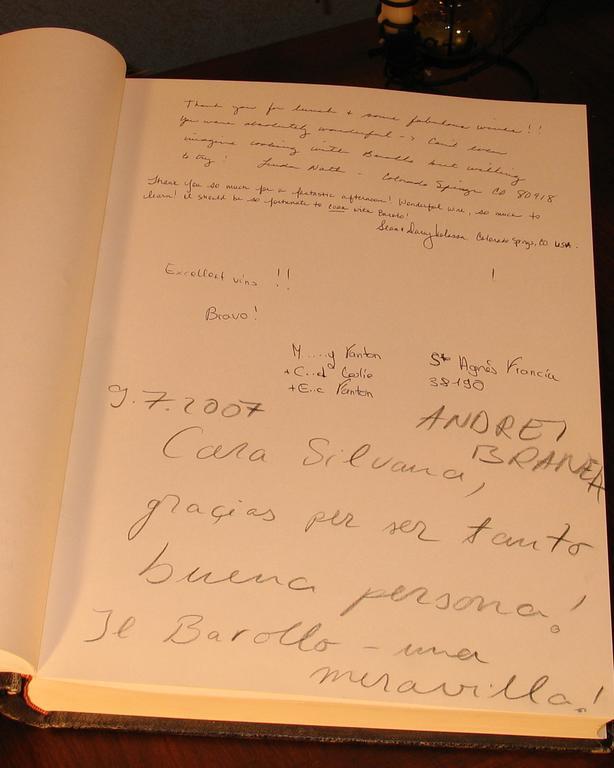 Thank you for lunch + some fabulous wines!!
You were absolutely wonderful -> Can't even
imagine cooking with Barollo but willing
to try! Linda Nath - Colorado Springs CO 80918
Thank you so much for a fantastic afternoon! Wonderful wine, so much to
learn! I should be so fortunate to cook with Barolo!
Sean + Colorado Springs, CO USA.
Excellent vins !! !
Bravo!
M.....y Vanton Ste Agnés Francia
+C...d Coslio 38190
+E..c Vanton
9.7.2007 ANDREJ
BRANEA
Cara Silvana,
graçias per ser tanto
buena persona!
Il Barollo - una
meravilla!